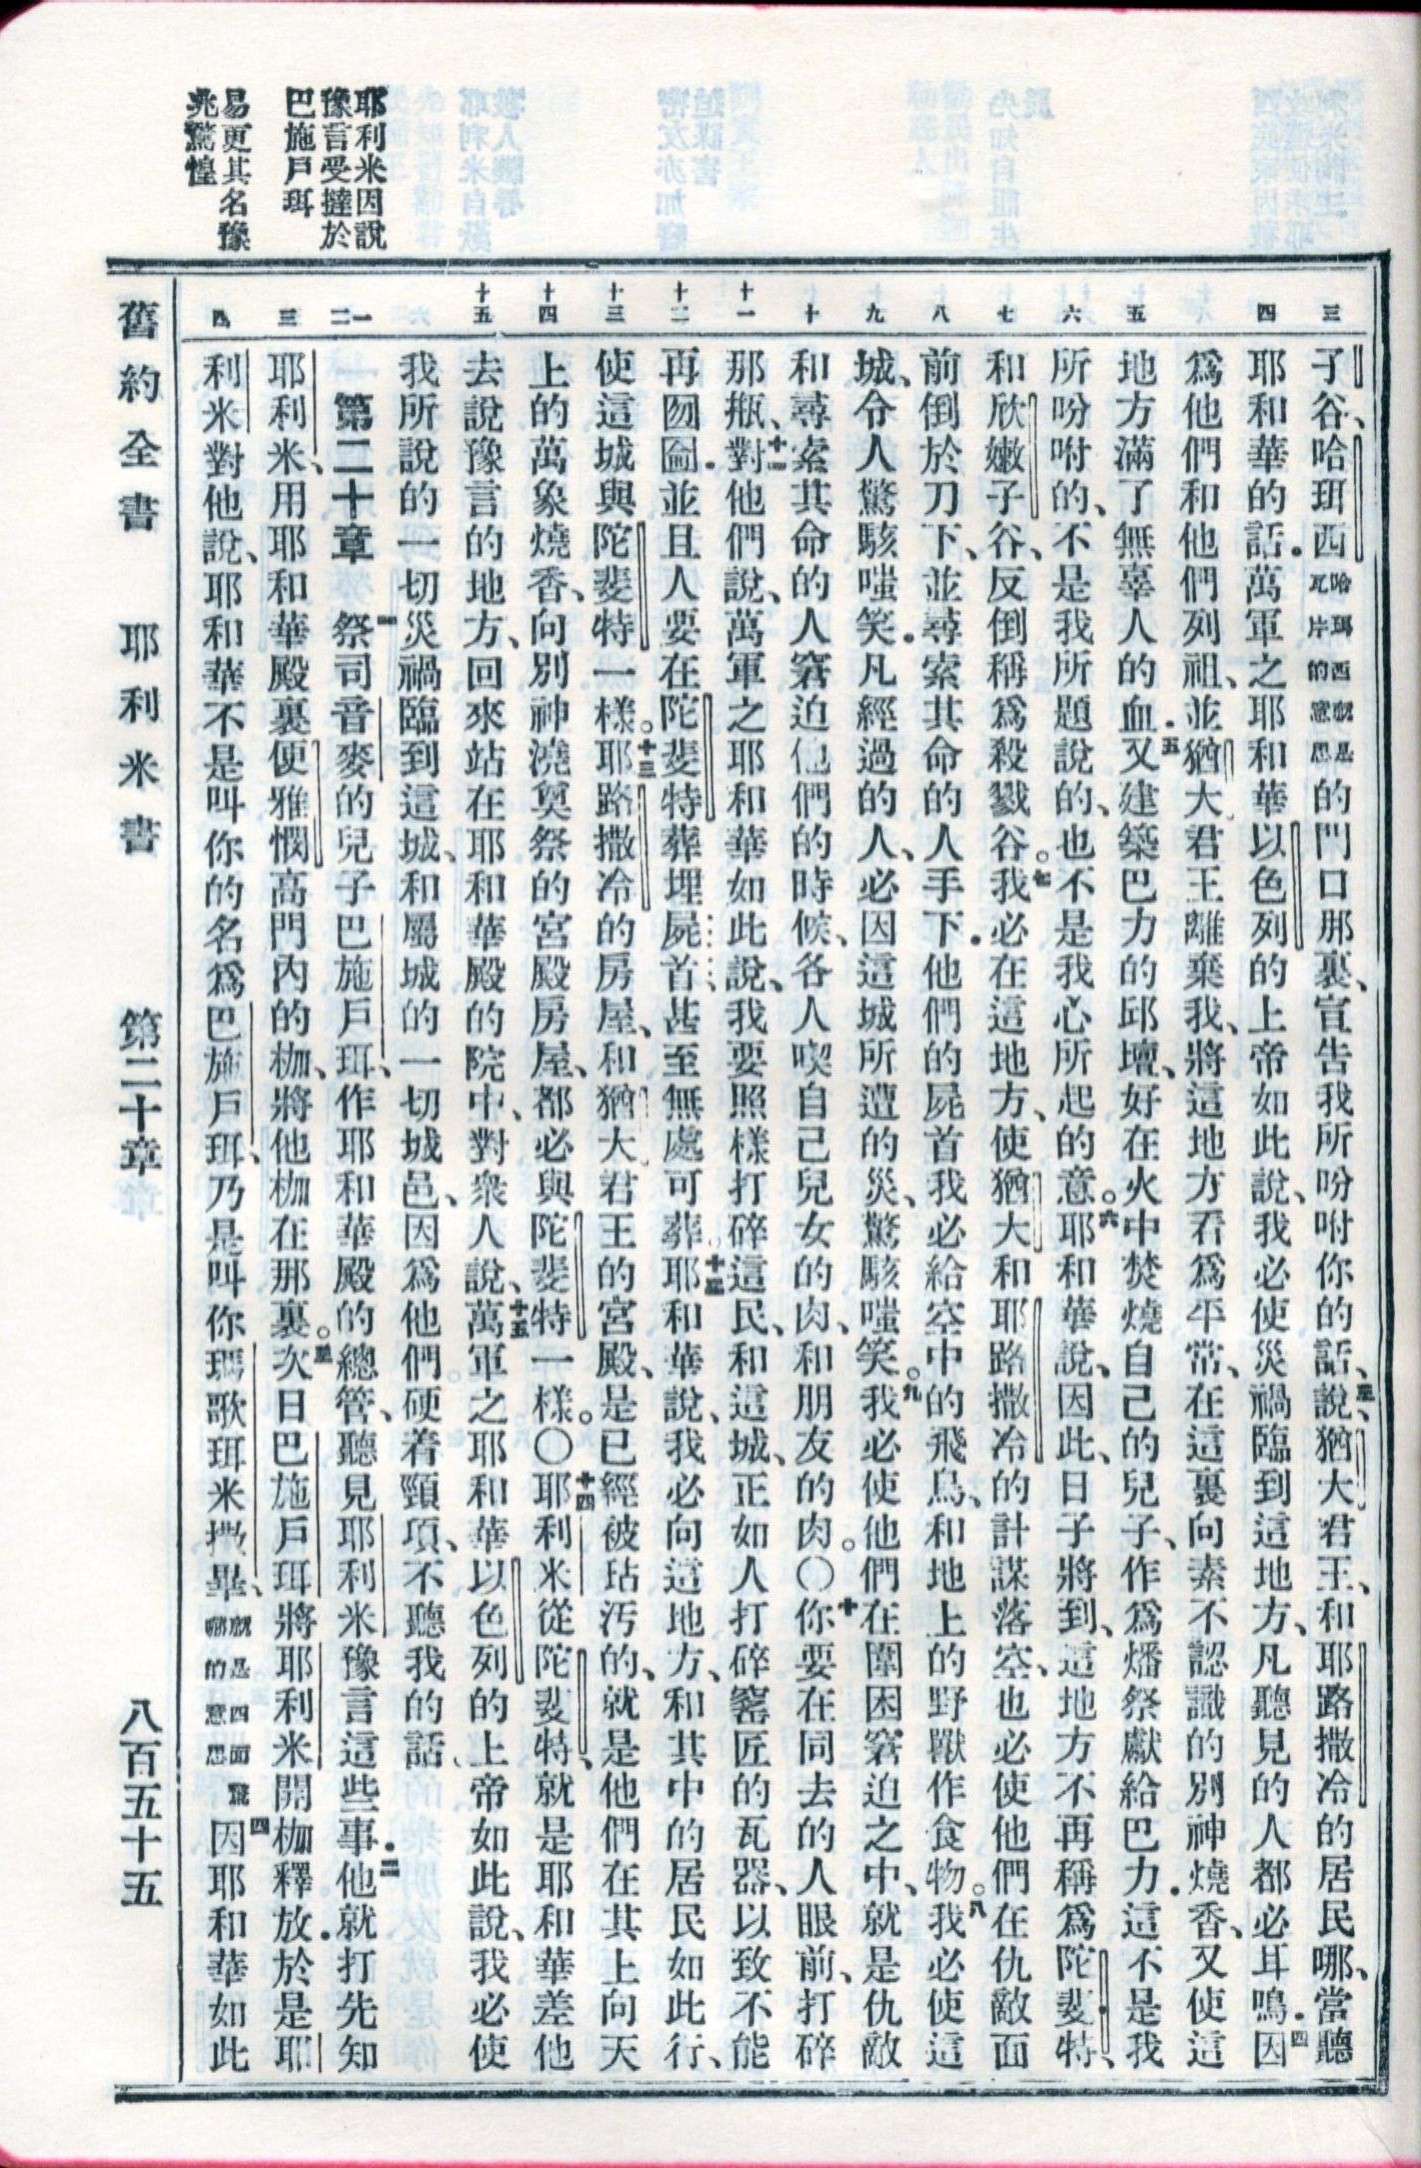 耶利米因說
豫言受撻於
巴施戶珥
易更其名豫
兆驚惶
三
四
五
六
七
八
九
十
十一
十二
十三
十四
十五
一
二
三
四
子谷、哈珥西哈珥西就是瓦片的意思的門口那裏、宣告我所吩咐你的話、三說、猶大君王、和耶路撒冷的居民哪、當聽
耶和華的話．萬軍之耶和華以色列的上帝如此說、我必使災禍臨到這地方、凡聽見的人都必耳鳴．四因
爲他們和他們列祖、並猶大君王離棄我、將這地方看爲平常、在這裏向素不認識的別神燒香、又使這
地方滿了無辜人的血．五又建築巴力的邱壇、好在火中焚燒自己的兒子、作爲燔祭獻給巴力．這不是我
所吩咐的、不是我所題說的、也不是我心所起的意。六耶和華說、因此、日子將到、這地方不再稱爲陀斐特、
和欣嫩子谷、反倒稱爲殺戮谷。七我必在這地方、使猶大和耶路撒冷的計謀落空、也必使他們在仇敵面
前倒於刀下、並尋索其命的人手下．他們的屍首我必給空中的飛鳥、和地上的野獸作食物。八我必使這
城、令人驚駭嗤笑．凡經過的人、必因這城所遭的災、驚駭嗤笑。九我必使他們在圍困窘迫之中、就是仇敵
和尋索其命的人窘迫他們的時候、各人喫自己兒女的肉、和朋友的肉。〇十你要在同去的人眼前、打碎
那瓶、十一對他們說、萬軍之耶和華如此說、我要照樣打碎這民、和這城、正如人打碎窰匠的瓦器、以致不能
再囫圇．並且人要在陀斐特葬埋屍首、甚至無處可葬。十二耶和華說、我必向這地方、和其中的居民如此行、
使這城與陀斐特一樣。十三耶路撒冷的房屋、和猶大君王的宮殿、是已經被玷汚的、就是他們在其上向天
上的萬象燒香、向別神澆奠祭的宮殿房屋、都必與陀斐特一樣。〇十四耶利米從陀斐特、就是耶和華差他
去說豫言的地方、回來站在耶和華殿的院中、對衆人說、十五萬軍之耶和華以色列的上帝如此說、我必使
我所說的一切災禍臨到這城、和屬城的一切城邑、因爲他們硬着頸項、不聽我的話。
第二十章　一祭司音麥的兒子巴施戶珥、作耶和華殿的總管、聽見耶利米豫言這些事．二他就打先知
耶利米、用耶和華殿裏便雅憫高門內的枷、將他枷在那裏。三次日巴施戶珥將耶利米開枷釋放．於是耶
利米對他說、耶和華不是叫你的名爲巴施戶珥、乃是叫你瑪歌珥米撒畢、就是四面驚嚇的意思四因耶和華如此
舊約全書　耶利米書　第二十章　八百五十五